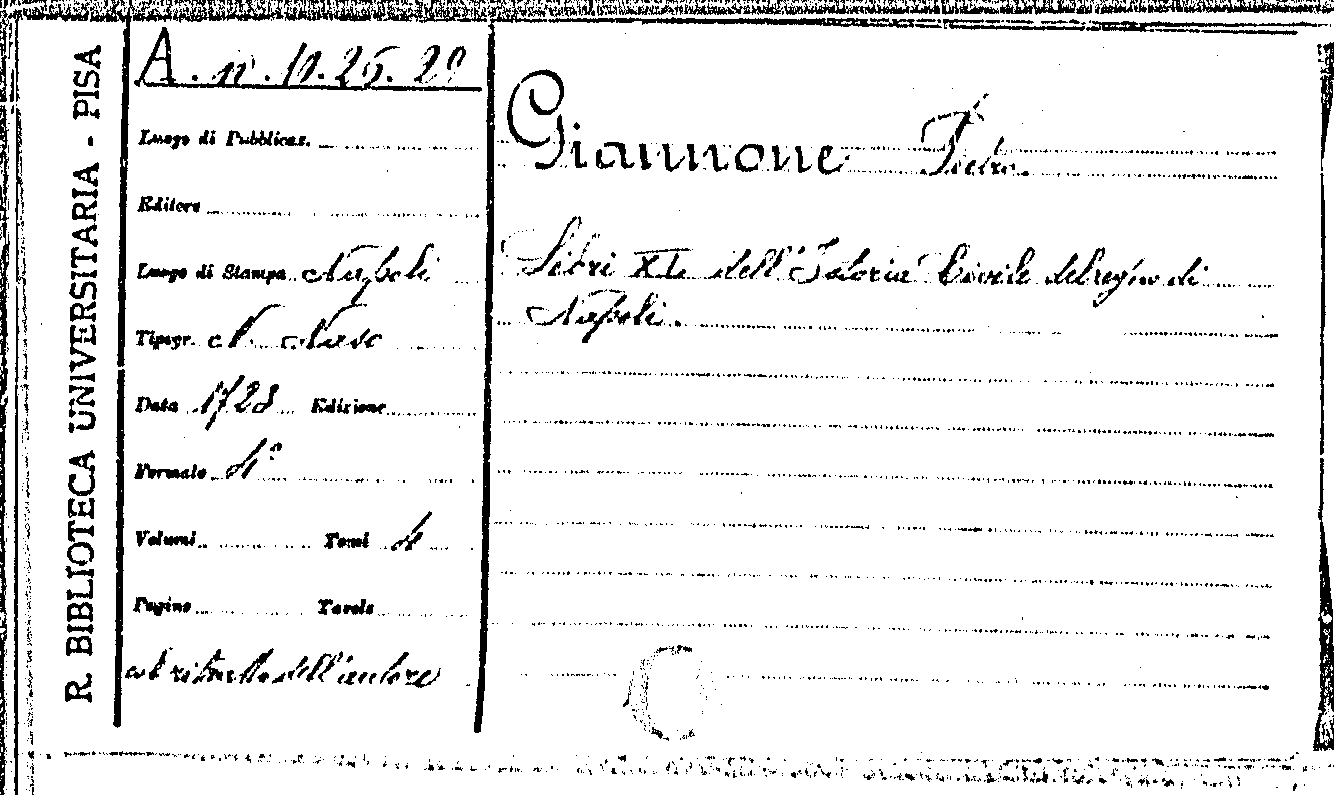 R. BIBLIOTECA UNIVERSITARIA - PISA
A. n. 10. 25. 29
Luogo di Pubblicaz.
Editore
Luogo di Stampa Napoli
Tipogr. N. Naso
Data 1723 Edizione
Formato 4°
Volumi Tomi 4
Pagine Tavole
col ritratto dell'autore
Giannone Pietro.
Libri XL dell'Istoria Civile del regno di
Napoli.